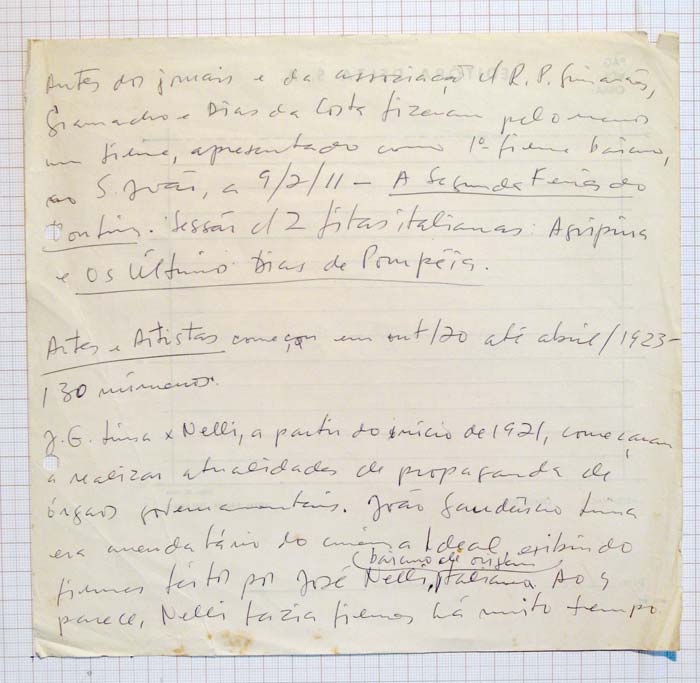 Antes dos jornais e da associação d R. P. Guimarães,
Gramacho e Dias da Costa fizeram pelo menos
um filme, apresentado como 1º filme baiano,
no S. João, a 9/2/11 – A Segunda Feira do
Bonfim. Sessão d 2 fitas italianas: Agripina
e Os Último Dias de Pompéia.
Artes e Artistas começou em out/20 até abril/1923 –
130 números.
J. G. Lima x Nelli, a partir do início de 1921, começaram
a realizar atualidades de propaganda de
órgãos governamentais. João Gaudêncio Lima
era arrendatário do cinema Ideal exibindo
baiano de origem
filmes feitos por José Nelli, italiana. Ao q
parece, Nelli fazia filmes há muito tempo